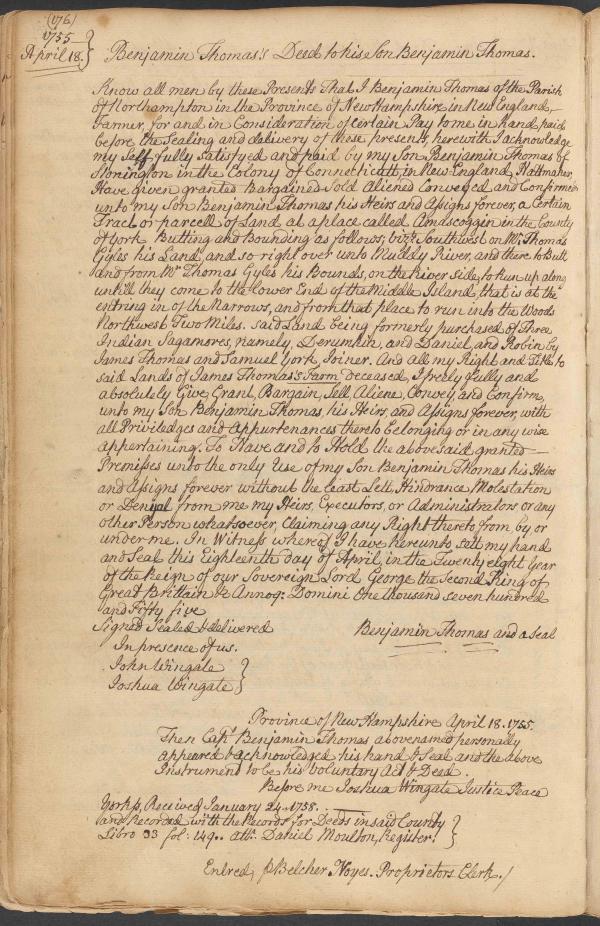 (176)
1755
April 18.}
Benjamin Thomas's Deed to his Son Benjamin Thomas.
Know all men by these Presents That I Benjamin Thomas of the Parish
of Northampton in the Province of New Hampshire in New England,
Farmer, for and in Consideration of certain Pay to me in hand paid
before the Sealing and delivery of these presents, herewith I acknowledge
my Self fully Satisfyed and paid by my Son Benjamin Thomas of
Stonington in the Colony of Connethicutt, in New England, Hattmaker,
Have given granted Bargained Sold Aliened Conveyed and Confirmed
unto my Son Benjamin Thomas his Heirs and Assigns forever, a Certain
Tract or parcell of Land at a place called Amascoggin in the County
of York Butting and Bounding as follows, vizt. Southwest on Mr. Thomas
Gyles his Land, and so right over unto Muddy River, and there to Butt
and from Mr. Thomas Gyles his Bounds, on the River side, to Run up along
untill they come to the lower End of the Middle Island, that is at the
entring in of the Narrows, and from that place to run into the Woods
Northwest Two Miles. said Land being formerly purchased of Three
Indian Sagamores, namely, Derumkin, and Daniel, and Robin by
James Thomas and Samuel York, Joiner. And all my Right and Title to
said Lands of James Thomas's Farm deceased, I freely fully and
absolutely Give, Grant, Bargain, Sell, Aliene, Convey, and Confirm,
unto my Son Benjamin Thomas, his Heirs, and Assigns forever, with
all Priviledges and Appurtenances thereto belonging or in any wise
appertaining. To Have and to Hold the above said granted
Premisses unto the only Use of my Son Benjamin Thomas his Heirs
and Assigns forever without the least Lett, Hindrance Molestation
or Denyal from me my Heirs, Executors, or Administrators or any
other Person whatsoever, Claiming any Right thereto from by or
under me. In Witness whereof I have hereunto sett my hand
and Seal this Eighteenth day of April, in the Twenty eight Year
of the Reign of our Sovereign Lord George the Second King of
Great Brittain &c Annoq: Domini One thousand seven hundred
and Fifty five
Signed Sealed & delivered Benjamin Thomas and a Seal
In presence of us.
John Wingate }
Joshua Wingate }
Province of New Hampshire April 18. 1755.
Then Capt. Benjamin Thomas abovenamed personally
appeared & acknowledged his hand & Seal and the above
Instrument to be his voluntary Act & Deed.
Before me Joshua Wingate Justice Peace
York ss, Received January 24. 1758.
and Recorded with the Records for Deeds in said County }
Libro 33 fol: 149.. Attr. Daniel Moulton, Register. }
Entred, p Belcher Noyes. Proprietors Clerk./